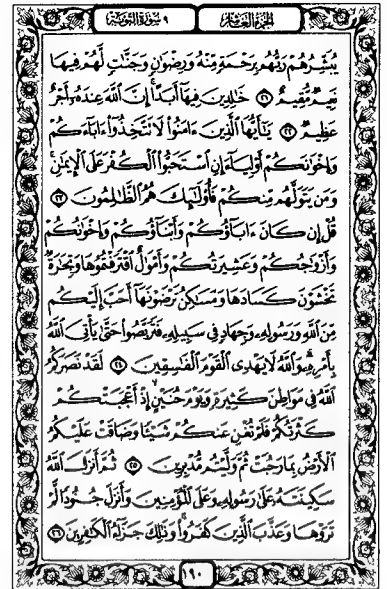 الجزء العاشر
٩ سورة التوبة
يُبَشِّرُهُمْ رَبُّهُم بِرَحْمَةٍ مِّنْهُ وَرِضْوَٰنٍ وَجَنَّٰتٍ لَّهُمْ فِيهَا
نَعِيمٌ مُّقِيمٌ ۝٢١ خَٰلِدِينَ فِيهَآ أَبَدًا إِنَّ ٱللَّهَ عِندَهُۥٓ أَجْرٌ
عَظِيمٌ ۝٢٢ يَٰٓأَيُّهَا ٱلَّذِينَ ءَامَنُوا۟ لَا تَتَّخِذُوٓا۟ ءَابَآءَكُمْ
وَإِخْوَٰنَكُمْ أَوْلِيَآءَ إِنِ ٱسْتَحَبُّوا۟ ٱلْكُفْرَ عَلَى ٱلْإِيمَٰنِ
وَمَن يَتَوَلَّهُم مِّنكُمْ فَأُو۟لَٰٓئِكَ هُمُ ٱلظَّٰلِمُونَ ۝٢٣
قُلْ إِن كَانَ ءَابَآؤُكُمْ وَأَبْنَآؤُكُمْ وَإِخْوَٰنُكُمْ
وَأَزْوَٰجُكُمْ وَعَشِيرَتُكُمْ وَأَمْوَٰلٌ ٱقْتَرَفْتُمُوهَا وَتِجَٰرَةٌ
تَخْشَوْنَ كَسَادَهَا وَمَسَٰكِنُ تَرْضَوْنَهَآ أَحَبَّ إِلَيْكُم
مِّنَ ٱللَّهِ وَرَسُولِهِۦ وَجِهَادٍ فِى سَبِيلِهِۦ فَتَرَبَّصُوا۟ حَتَّىٰ يَأْتِىَ ٱللَّهُ
بِأَمْرِهِۦ وَٱللَّهُ لَا يَهْدِى ٱلْقَوْمَ ٱلْفَٰسِقِينَ ۝٢٤ لَقَدْ نَصَرَكُمُ
ٱللَّهُ فِى مَوَاطِنَ كَثِيرَةٍ وَيَوْمَ حُنَيْنٍ إِذْ أَعْجَبَتْكُمْ
كَثْرَتُكُمْ فَلَمْ تُغْنِ عَنكُمْ شَيْـًٔا وَضَاقَتْ عَلَيْكُمُ
ٱلْأَرْضُ بِمَا رَحُبَتْ ثُمَّ وَلَّيْتُم مُّدْبِرِينَ ۝٢٥ ثُمَّ أَنزَلَ ٱللَّهُ
سَكِينَتَهُۥ عَلَىٰ رَسُولِهِۦ وَعَلَى ٱلْمُؤْمِنِينَ وَأَنزَلَ جُنُودًا لَّمْ
تَرَوْهَا وَعَذَّبَ ٱلَّذِينَ كَفَرُوا۟ وَذَٰلِكَ جَزَآءُ ٱلْكَٰفِرِينَ ۝٢٦
١٩٠